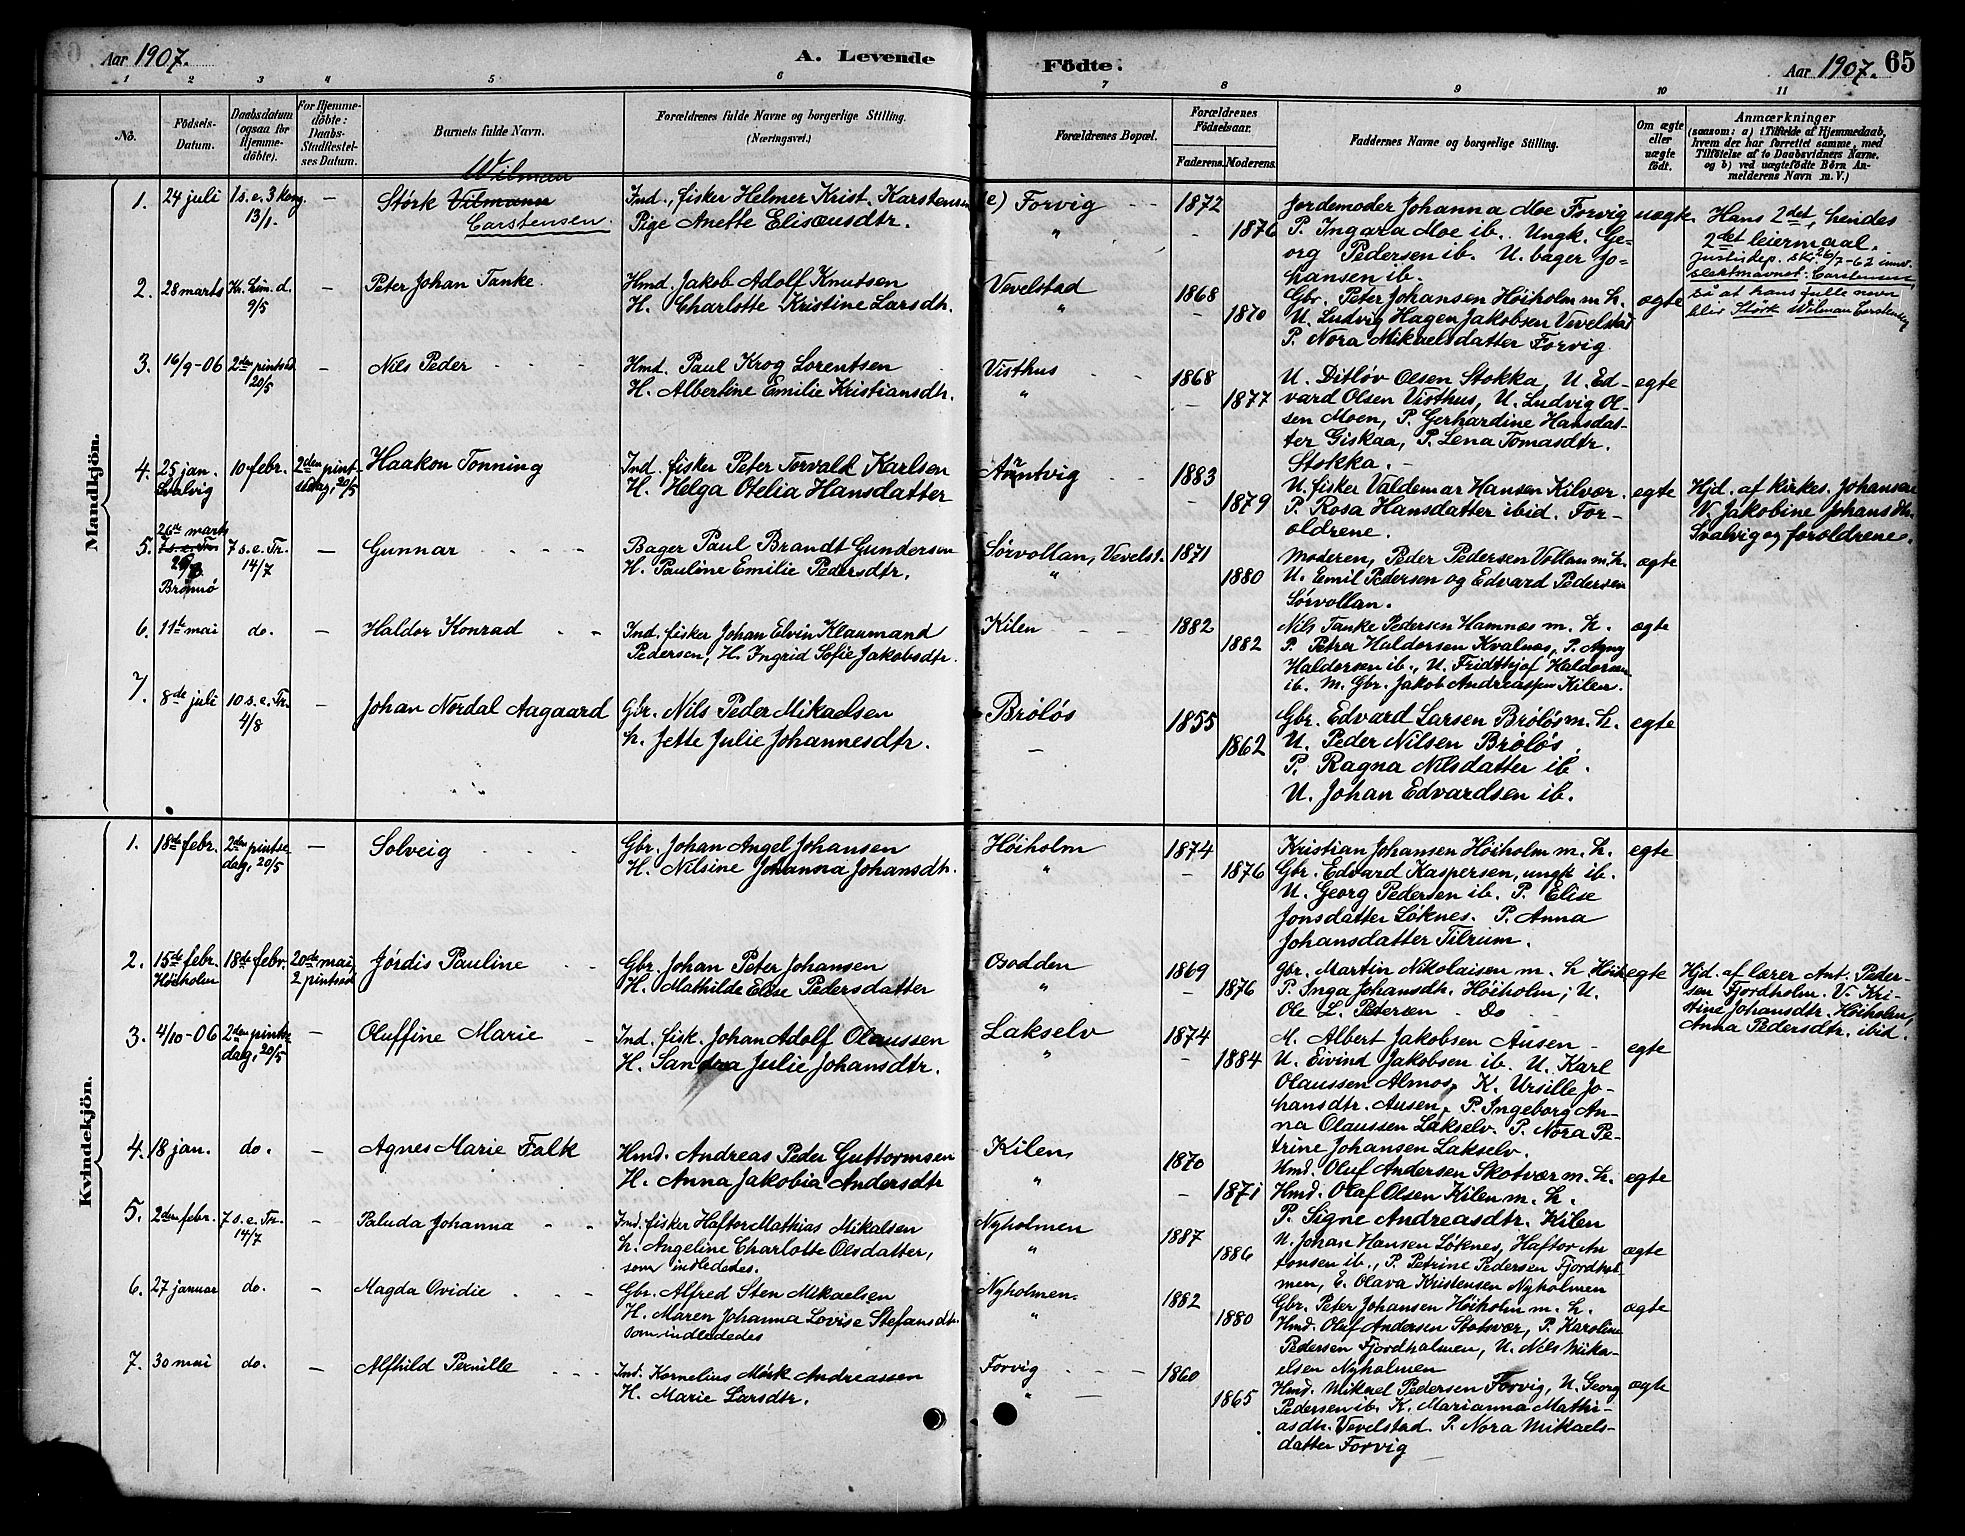 Aar 1907.
A. Levende Födte.
Aar 1907.
65
1 2 3 4 5 6 7 8 9 10 11
No.
Födsels-Datum.
Daabsdatum (ogsaa for Hjemmedöbte).
For Hjemmedöbte: Daabs-Stadfæstelses Datum.
Barnets fulde Navn.
Forældrenes fulde Navne og borgerlige Stilling. (Næringsvei.)
Forældrenes Bopæl.
Forældrenes Födselsaar.
Faderens. Moderens.
Faddernes Navne og borgerlige Stilling.
Om ægte eller uægte födt.
Anmærkninger
(saasom: a) i Tilfælde af Hjemmedaab, hvem der har forrettet samme, med Tilföielse af to Daabsvidners Navne, og b) ved uægtefödte Börn Anmelderens Navn m. V.)
Mandkjön.
1. 24 juli
1 s. e. 3 kong. 13/1.
–
Wilman
Størk Vilmann
Carstensen
Ind., fisker Helmer Krist. Karstensen
Pige Anette Eliseusdtr.
(e) Forvig
"
1872
1876
Jordemoder Johanna Moe Forvig
P. Ingara Moe ib. Ungk. Ge-
org Pedersen ib. U. bager Jo-
hansen ib.
uægte
Hans 2det, hendes
2det leiermaal.
Justisdep. skr. 26/7-62 innv.
slektsnavnet: Carstensen,
så at hans fulle navn
blir Størk Wilman Carstensen
2. 28 marts
Kr. Him. d. 9/5
–
Peter Johan Tanke
Hmd. Jakob Adolf Knutsen
H. Charlotte Kristine Larsdtr.
Vevelstad
"
1868
1870
Gbr. Peter Johansen Høiholm m. h.
U. Ludvig Hagen Jakobsen Vevelstad
P. Nora Mikaelsdatter Forvig
ægte
3. 16/9-06
2den pintsd. 20/5
–
Nils Peder
Hmd. Paul Krog Lorentsen
H. Albertine Emilie Kristiansdtr.
Visthus
"
1868
1877
U. Ditløv Olsen Stokka, U. Ed-
vard Olsen Visthus, U. Ludvig Ol-
sen Moen, P. Gerhardine Hansdat-
ter Giskaa, P. Lena Tomasdtr.
Stokka. –
egte
4. 25 jan.
Svalvig
10 febr.
2den pint-
sedag, 20/5
Haakon Tonning
Ind. fisker Peter Torvald Karlsen
H. Helga Otelia Hansdatter
Aarntvig
1883
1879
U. fisker Valdemar Hansen Kilvær.
P. Rosa Hansdatter ibid. For-
oldrene.
egte
Hjd. af kirkes. Johansen
V. Jakobine Johansdtr.
Svalvig og foroldrene.
26de marts
5. 7 s. e. Tr.
Brønnø
7 s. e. Tr. 14/7
–
Gunnar
Bager Paul Brandt Gundersen
H. Pauline Emilie Pedersdtr.
Sørvollan, Vevelst.
"
1871
1880
Moderen, Peder Pedersen Vollan m. h.
U. Emil Pedersen og Edvard Pedersen
Sørvollan.
ægte
6. 11te mai
do.
–
Haldor Konrad
Ind. fisker Johan Elvin Klaumand
Pedersen, H. Ingrid Sofie Jakobsdtr.
Kilen
1882
1882
Nils Tanke Pedersen Hamnæs m. h.
P. Petra Haldorsen Kvalnæs, P. Agny
Haldorsen ib., U. Fridthjof Haldorsen
ib. M. Gbr. Jakob Andreassen Kilen.
ægte
7. 8de juli
10 s. e. Tr. 4/8
–
Johan Nordal Aagaard
Gbr. Nils Peder Mikaelsen
h. Jette Julie Johannesdtr.
Bröløs
–
1855
1862
Gbr. Edvard Larsen Bröløs m. h.
U. Peder Nilsen Bröløs.
P. Ragna Nilsdatter ib.
U. Johan Edvardsen ib.
egte
Kvindekjön.
1. 18de febr.
2den pintse-
dag, 20/5
–
Solveig
Gbr. Johan Angel Johansen
H. Nilsine Johanna Johansdtr.
Høiholm
"
1874
1876
Kristian Johansen Høiholm m. h.
Gbr. Edvard Kaspersen, ungk ib.
U. Georg Pedersen ib. P. Elise
Jonsdatter Løknes. P. Anna
Johansdatter Tilrum.
egte
2. 15de febr.
Høiholm
18de febr.
20de mai,
2 pintsed.
Jørdis Pauline
Gbr. Johan Peter Johansen
H. Mathilde Elise Pedersdatter
Osodden
"
1869
1876
Gbr. Martin Nikolaisen m. h Høih
P. Inga Johansdtr. Høiholm; U.
Ole L. Petersen Do
egte
Hjd. af lærer Ant. Peder-
sen Fjordholm. V. Kri-
stine Johansdtr. Høiholm,
Anna Pedersdtr. ibid.
3. 4/10-06
2den pints-
dag, 20/5
–
Oluffine Marie
Ind. fisk. Johan Adolf Olaussen
H. Sandra Julie Johansdtr.
Lakselv
"
1874
1884
M. Albert Jakobsen Ausen –
U. Eivind Jakobsen ib. U. Karl
Olaussen Almos, K. Ursille Jo-
hansdtr. Ausen, P. Ingeborg An-
na Olaussen Lakselv. P. Nora Pe-
trine Johansen Lakselv.
egte
4. 18 jan.
do.
–
Agnes Marie Falk
Hmd. Andreas Peder Guttormsen
H. Anna Jakobia Andersdtr
Kilen
"
1870
1871
Hmd. Oluf Andersen Skotvær m. h.
Hmd. Olaf Olsen Kilen m. h.
P. Signe Andreasdtr. Kilen
egte
5. 2den febr.
7 s. e. Tr. 14/7
–
Paluda Johanna
Ind. fisker Haftor Mathias Mikalsen
h. Angeline Charlotte Olsdatter,
som indledes.
Nyholmen
"
1887
1886
U. Johan Hansen Løknes, Haftor An
tonsen ib., P. Petrine Pedersen Fjordhol-
men, E. Olava Kristensen Nyholmen
ægte
6. 27 januar
do.
–
Magda Ovidie
Gbr. Alfred Sten Mikaelsen
H. Maren Johanna Lovise Stefansdtr.
som indledes
Nyholmen
"
1882
1880
Gbr. Peter Johansen Høiholm m. h.
Hmd. Oluf Andersen Stotvær, P. Karoline
Pedersen Fjordholmen, U. Nils Mika-
elsen Nyholmen
ægte
7. 30 mai
do.
–
Alfhild Pernille
Ind. Kornelius Mørk Andreassen
H. Marie Larsdtr.
Forvig
"
1860
1865
Hmd. Mikael Pedersen Forvig, U. Georg
Pedersen ib. K. Marianna Mathi-
asdtr. Vevelstad. P. Nora Mikaels-
datter Forvig
ægte